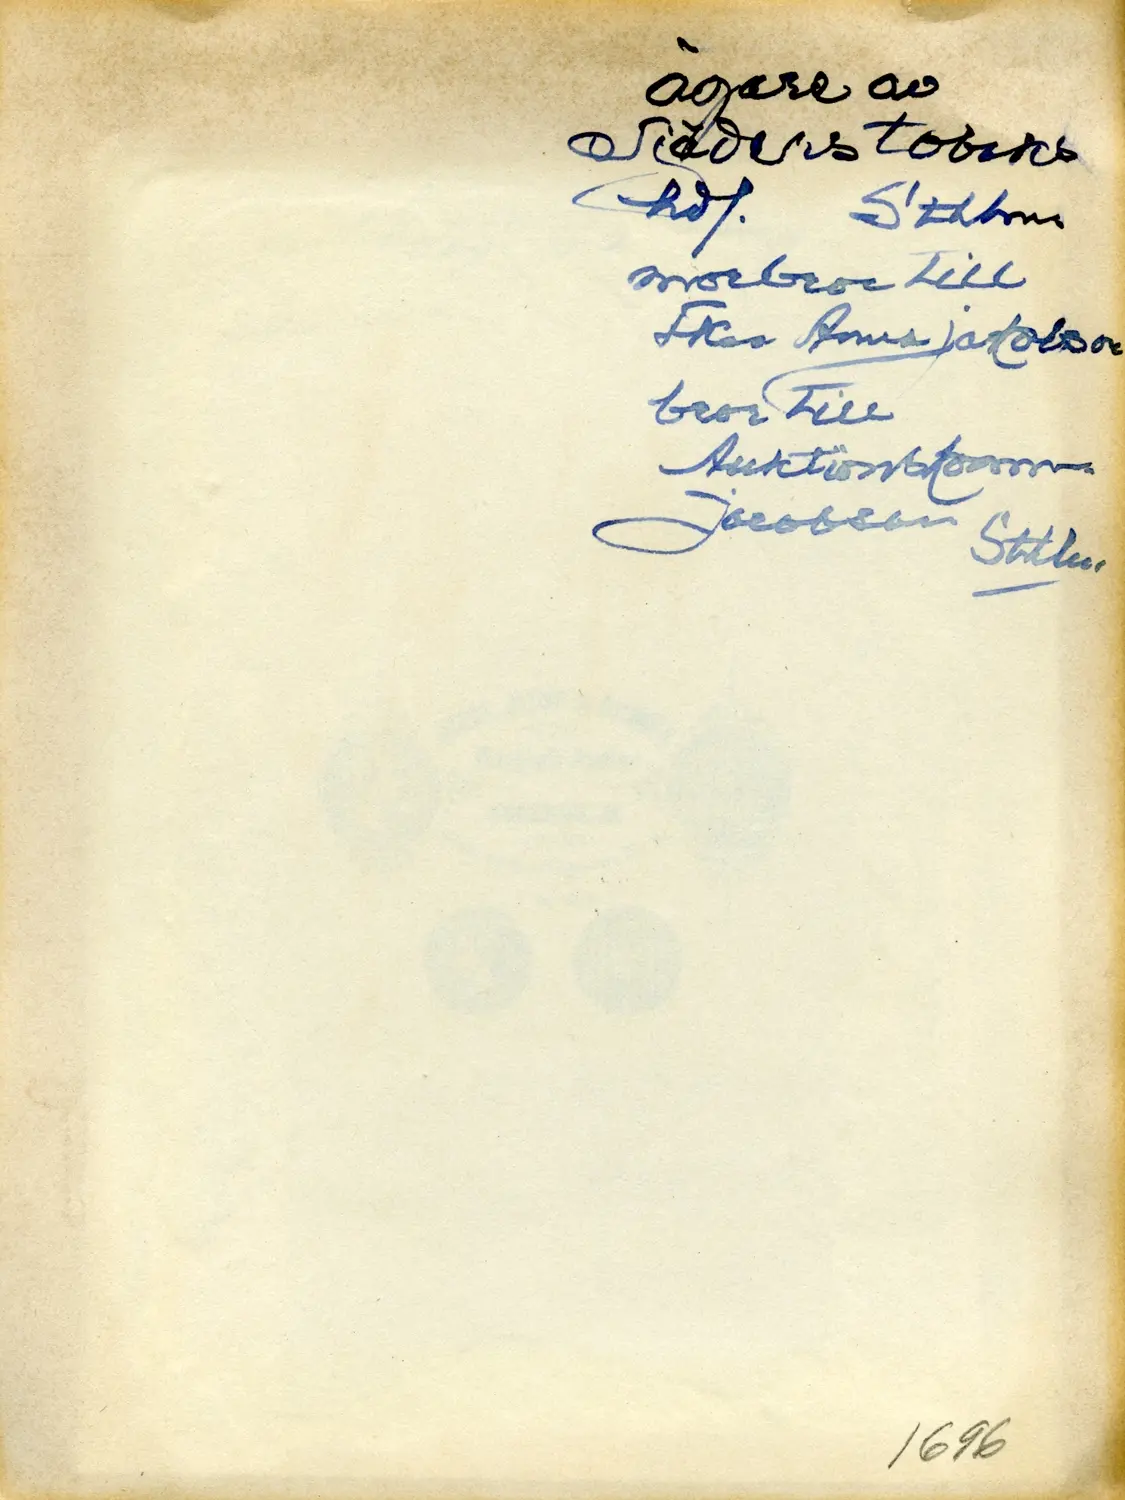 ägare av
Söders tobaks
hdl. Sthlm
morbror till
Fkn Anna jakobson
bror till
Auktionskomm
Jacobson
Sthlm.
1696